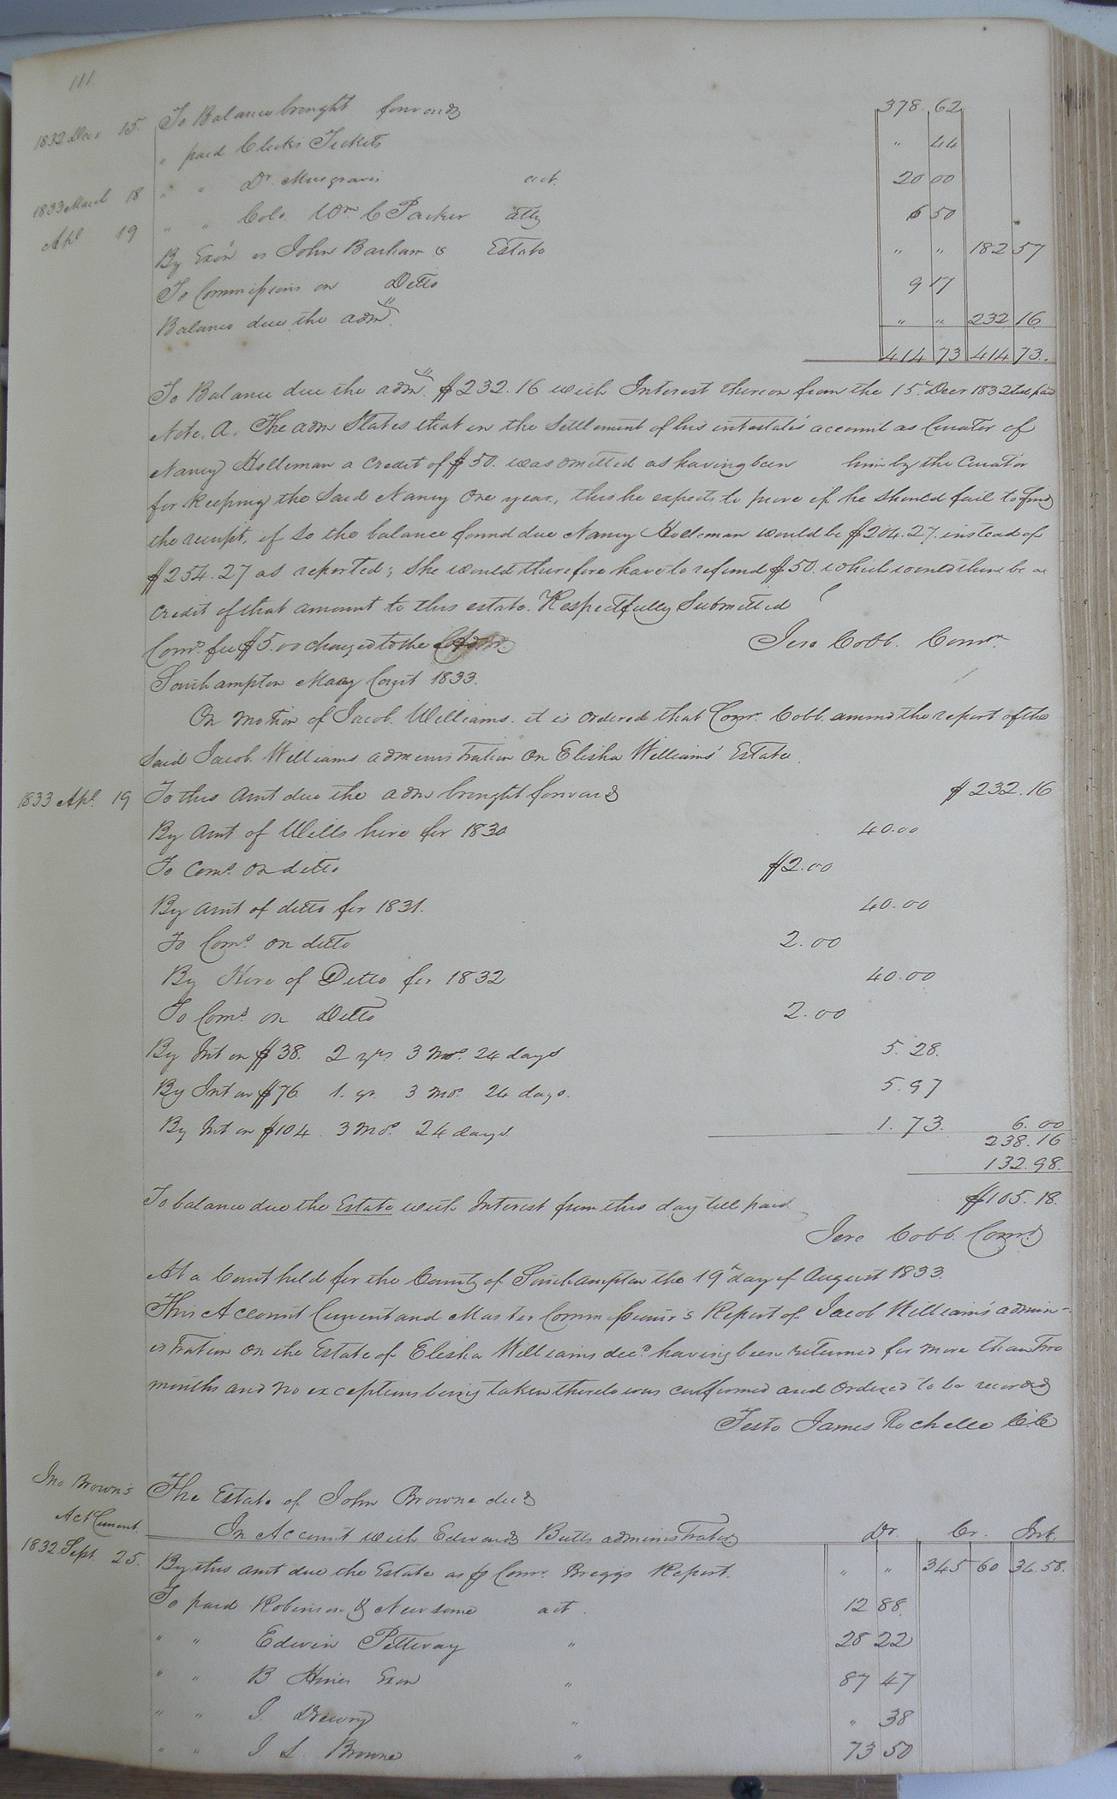 111
1832 Dec 15. To Balance brought forward 378 62
" paid Clerks Tickets " 44
1833 March 18 " " Dr. Musgraves act. 20 00
Apl 19 " " Colo. Wm C Parker atty 6 50
By Exōn vs John Barham's Estate " " 182 57
To Commissions on Ditto 9 17
Balance due the adm " " 232 16
414 73 414 73.
To Balance due the adm. $232.16 with Interest thereon from the 15th. Decr 1832 till paid
Note. A. The adm States that in the Settlement of his intestate's account as Curator of
Nancy Holleman a credit of $50. was omitted as having been him by the Curator
for keeping the Said Nancy One year, this he expects to prove if he should fail to find
the receipt, if So the balance found due Nancy Holleman would be $204.27. instead of
$254.27 as reported; She would therefore have to refund $50. which would then be a
Credit of that amount to this estate. Respectfully Submitted
Comr. fee $5.00 charged to the Jere Cobb. Comr.
Southampton May Court 1833.
On motion of Jacob Williams. it is ordered that Comr. Cobb. amend the report of the
Said Jacob Williams administration On Elisha Williams' Estate.
1833 Apl. 19 To this Amt due the adm brought forward $232.16
By amt of Wills hire for 1830 40.00
To Coms. on ditto $2.00
By amt of ditto for 1831. 40.00
To Coms. on ditto 2.00
By Hire of Ditto for 1832 40.00
To Coms. on Ditto 2.00
By Int on $38. 2 yrs 3 Mos. 24 days 5.28.
By Int on $76 1. yr. 3 mos. 24 days. 5.97
By Int on $104. 3 Mos. 24 days 1.73. 6.00
238.16
132.98.
To balance due the Estate with Interest from this day till paid $105.18.
Jere Cobb. Comr.
At a Court held for the County of Southampton the 19th day of August 1833.
This Account Current and Master Commissioner's Report of Jacob Williams' admin-
istration on the Estate of Elisha Williams decd. having been returned for more than Two
months and no exceptions being taken thereto was confirmed and ordered to be recorded
Teste James Rochelle C.C
Jno Brown's The Estate of John Browne decd
Act Current. In Account with Edward Butts administrator Dr. Cr. Int.
1832 Sept. 25. By this amt due the Estate as p Comr. Briggs Report. " " 345 60 34.58.
To paid Robinson & Newsome act. 12 88.
" " Edwin Pettway " 28 22
" " B Hines Exor " 87 47
" " J. Drewry " " 38
" " J S Browne " 73 50